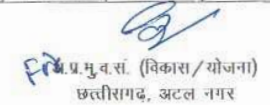 अ.प्र.मु.व.सं. (विकास/योजना)
छत्तीसगढ़, अटल नगर